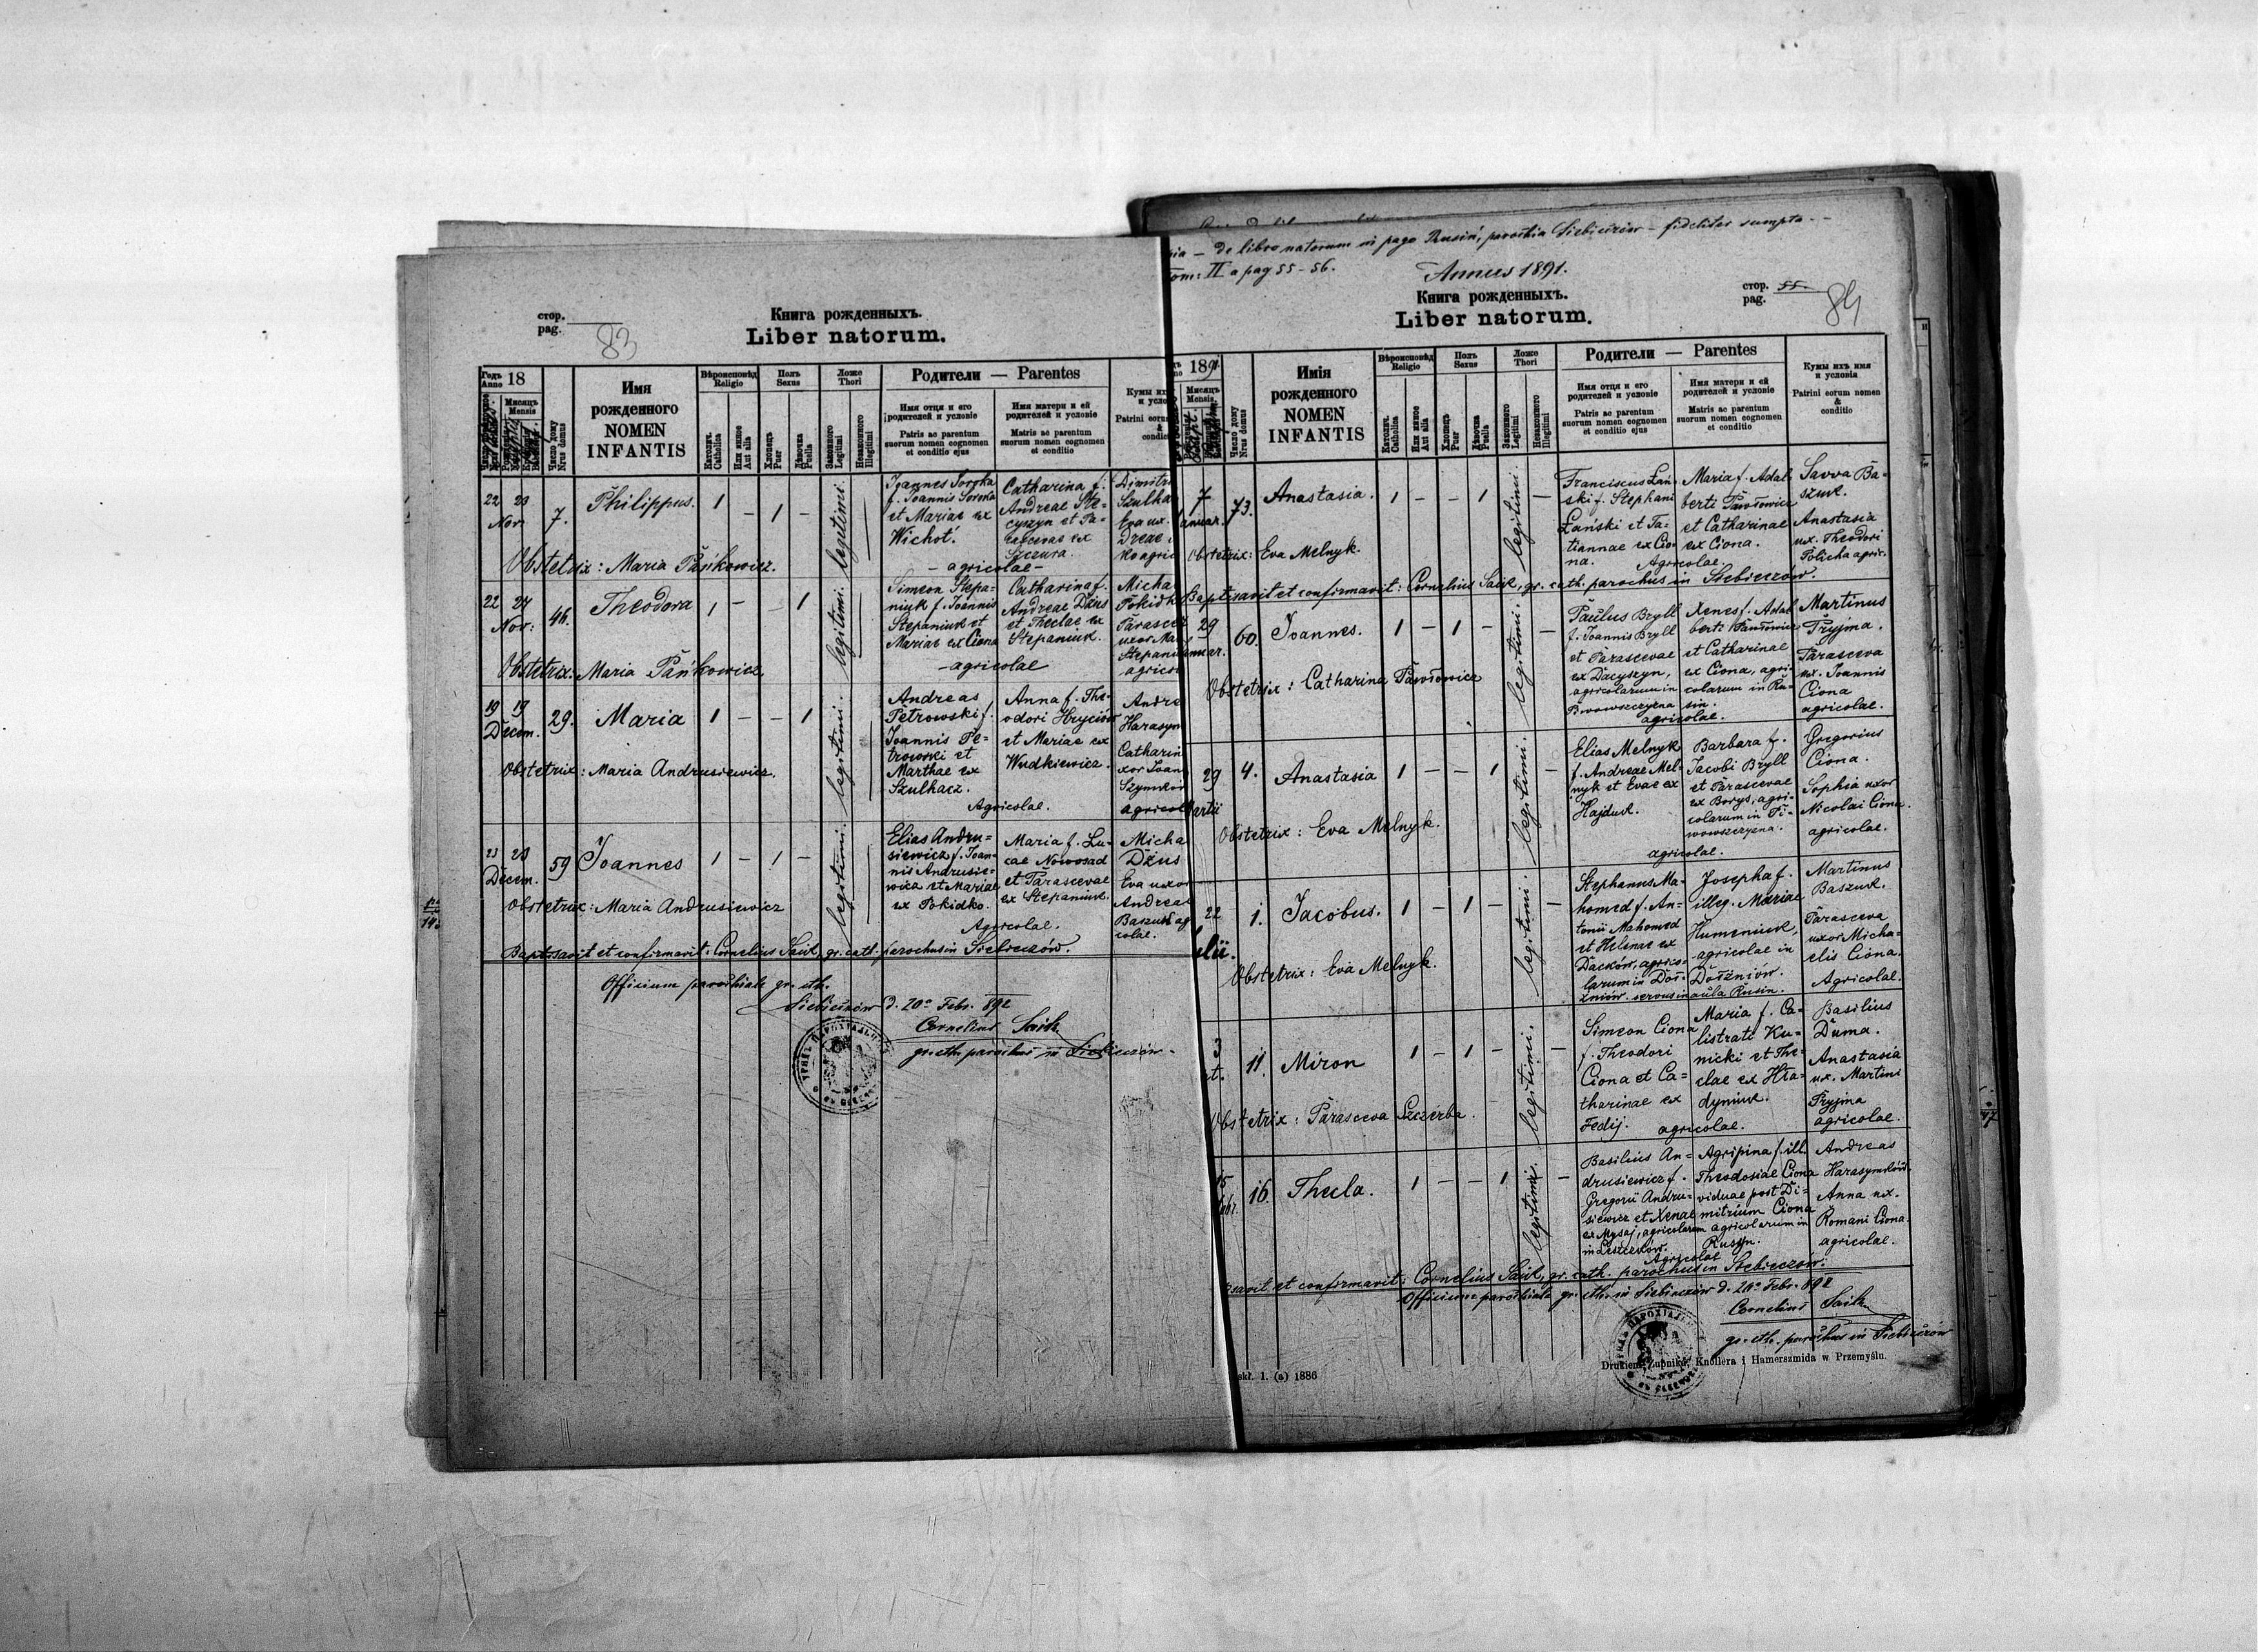 стор.
pag.
83
Книга рожденныхъ.
Liber natorum.
Годъ
Anno 18
Мисяцъ
Mensis
Число дому
Nrus domus
Имя
рожденного
NOMEN
INFANTIS
Вѣроисповѣд
Religio
Католич.
Catholica
Или инное
Aut alia
Полъ
Sexus
Хлопецъ
Puer
Дѣвочка
Puella
Ложе
Thori
Законного
Legitimi
Незаконного
Illegitimi
Родители — Parentes
Имя отця и его
родителей и условіе
Patris ac parentum
suorum nomen cognomen
et conditio ejus
Имя матери и ей
родителей и условіе
Matris ac parentum
suorum nomen cognomen
et conditio
Кумы их
и усло
Patrini eoru
&
condic
22 23
Nov. 7. Philippus. 1 – 1 – legitimi.
Joannes Soroka
f. Joannis Soroka
et Mariae ex
Wichot.
Catharina f.
Andreae Ste-
cyszyn et Pa-
rascevae ex
Szczura.
– agricolae –
Dimitri
Szulha
Obstetrix: Maria Pańkowicz.
22 24
Nov: 46. Theodora 1 – 1 legitimi.
Simeon Stepa-
niuk f. Joannis
Stepaniuk et
Mariae ex Ciona
Catharina f.
Andreae Dżus
et Theclae ex
Stepaniuk.
– agricolae
Micha
Pokidk
Parascev
uxor Ma
Stepani
agrico
Obstetrix: Maria Pańkowicz
19 19
Decem. 29. Maria 1 – – 1 legitimi.
Andreas
Petrowski f.
Joannis Pe-
trowski et
Marthae ex
Szulhacz.
Anna f. The-
odori Hryciów
et Mariae ex
Wudkiewicz.
Agricolae.
Andre
Harasym
Catharin
xor Joan
Szymkow
agricol
Obstetrix: Maria Andrusiewicz.
23 23
Decem. 59 Joannes 1 – 1 – legitimi.
Elias Andru-
siewicz f. Joan-
nis Andrusie-
wicz et Mariae
ex Pokidko.
Maria f. Lu-
cae Nowosad
et Parascevae
ex Stepaniuk.
Agricolae.
Micha
Dżus
Eva uxor
Andreae
Baszuk ag
colae.
Obstetrix: Maria Andrusiewicz
Baptisavit et confirmavit: Cornelius Saik, gr. cath. parochus in Siebieczów.
Officium parochiale gr. cth.
Siebieczów d. 20a Febr. 892
Cornelius Saik
gr. cth. parochus in Siebieczów
ia – De libro natorum in pago Rusin, parochia Siebieczów – fideliter sumpta –
Tom: II a pag 55 – 56.
Annus 1891.
Книга рожденныхъ.
Liber natorum.
стор. 55.
pag.
84
1891.
Мисяцъ
Mensis
Число дому
Nrus domus
Имія
рожденного
NOMEN
INFANTIS
Вѣроисповѣд
Religio
Католич.
Catholica
Или инное
Aut alia
Полъ
Sexus
Хлопецъ
Puer
Дѣвочка
Puella
Ложе
Thori
Законного
Legitimi
Незаконного
Illegitimi
Родители — Parentes
Имя отця и его
родителей и условіе
Patris ac parentum
suorum nomen cognomen
et conditio ejus
Имя матери и ей
родителей и условіе
Matris ac parentum
suorum nomen cognomen
et conditio
Кумы ихъ имя
и условія
Patrini eorum nomen
&
conditio
7
anuar. 73. Anastasia. 1 – – 1 legitimi. –
Franciscus Łań-
ski f. Stephani
Łański et Ta-
tiannae ex Cio-
na.
Maria f. Adal-
berti Pawłowicz
et Catharinae
ex Ciona.
Agricolae.
Savva Ba-
szuk.
Anastasia
ux. Theodori
Policha agric.
Obstetrix: Eva Melnyk.
Baptisavit et confirmavit: Cornelius Saik, gr. cath. parochus in Siebieczów.
29
anuar. 60. Joannes. 1 – 1 – legitimi. –
Paulus Bryll
f. Joannis Bryll
et Parascevae
ex Dacyszyn,
agricolarum in
Xenes f. Adal
berti Pawłowicz
et Catharinae
ex Ciona, agri-
colarum in Ru-
sin.
agricolae.
Martinus
Pryjma.
Parasceva
ux. Joannis
Ciona
agricolae.
Obstetrix: Catharina Pawłowicz
29
artii 4. Anastasia 1 – – 1 legitimi. –
Elias Melnyk
f. Andreae Mel-
nyk et Evae ex
Hajduk.
Barbara f.
Jacobi Bryll
et Parascevae
ex Borys, agri-
colarum in Pi-
wowszczyzna.
agricolae.
Gregorius
Ciona.
Sophia uxor
Nicolai Ciona.
agricolae.
Obstetrix: Eva Melnyk.
22
1. Jacobus. 1 – 1 – legitimi. –
Stephanus Ma-
homed f. An-
tonii Mahomed
et Helenae ex
Daćków, agrico-
larum in Doł-
żniów. servus in aula Rusin.
Josepha f.
illeg. Mariae
Humeniuk,
agricolae in
Dołżniów.
Martinus
Baszuk.
Parasceva
uxor Micha-
elis Ciona.
Agricolae.
Obstetrix: Eva Melnyk.
3
11. Miron 1 – 1 – legitimi. –
Simeon Ciona
f. Theodori
Ciona et Ca-
tharinae ex
Fedij.
Maria f. Ca-
listrati Ku-
nicki et The-
clae ex Hła-
dyniuk.
agricolae.
Basilius
Duma.
Anastasia
ux. Martini
Pryjma
agricolae.
Obstetrix: Parasceva Szczerba.
15
16 Thecla. 1 – – 1 legitimi. –
Basilius An-
drusiewicz f.
Gregorii Andru-
siewicz et Xenae
ex Mysaj, agricolarum
Agripina f. ill.
Theodosiae Ciona
viduae post Di-
mitrium Ciona
agricolarum in
Rusyn.
Agricolae
Andreas
Harasymków.
Anna ux.
Romani Ciona.
agricolae.
savit et confirmavit: Cornelius Saik, gr. cath. parochus in Siebieczów.
Officium parochiale gr. cth. in Siebieczów d. 20a Febr. 892
Cornelius Saik
gr. cth. parochus in Siebieczów
Drukiem Żupnika, Knollera i Hamerszmida w Przemyślu.
skł. 1. (a) 1886